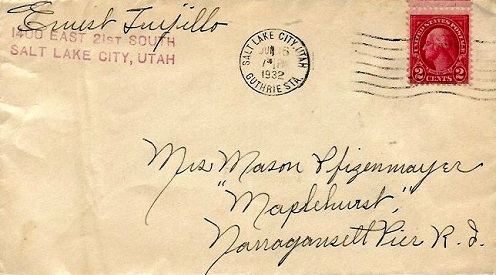 Ernest Trujillo
1400 EAST 21ST SOUTH
SALT LAKE CITY, UTAH
SALT LAKE CITY, UTAH
JUN 6
1932
GUTHRIE STA.
UNITED STATES POSTAGE
2 CENTS 2
Mrs Mason Pfizenmayer
"Maplehurst,"
Narragansett Pier R. I.